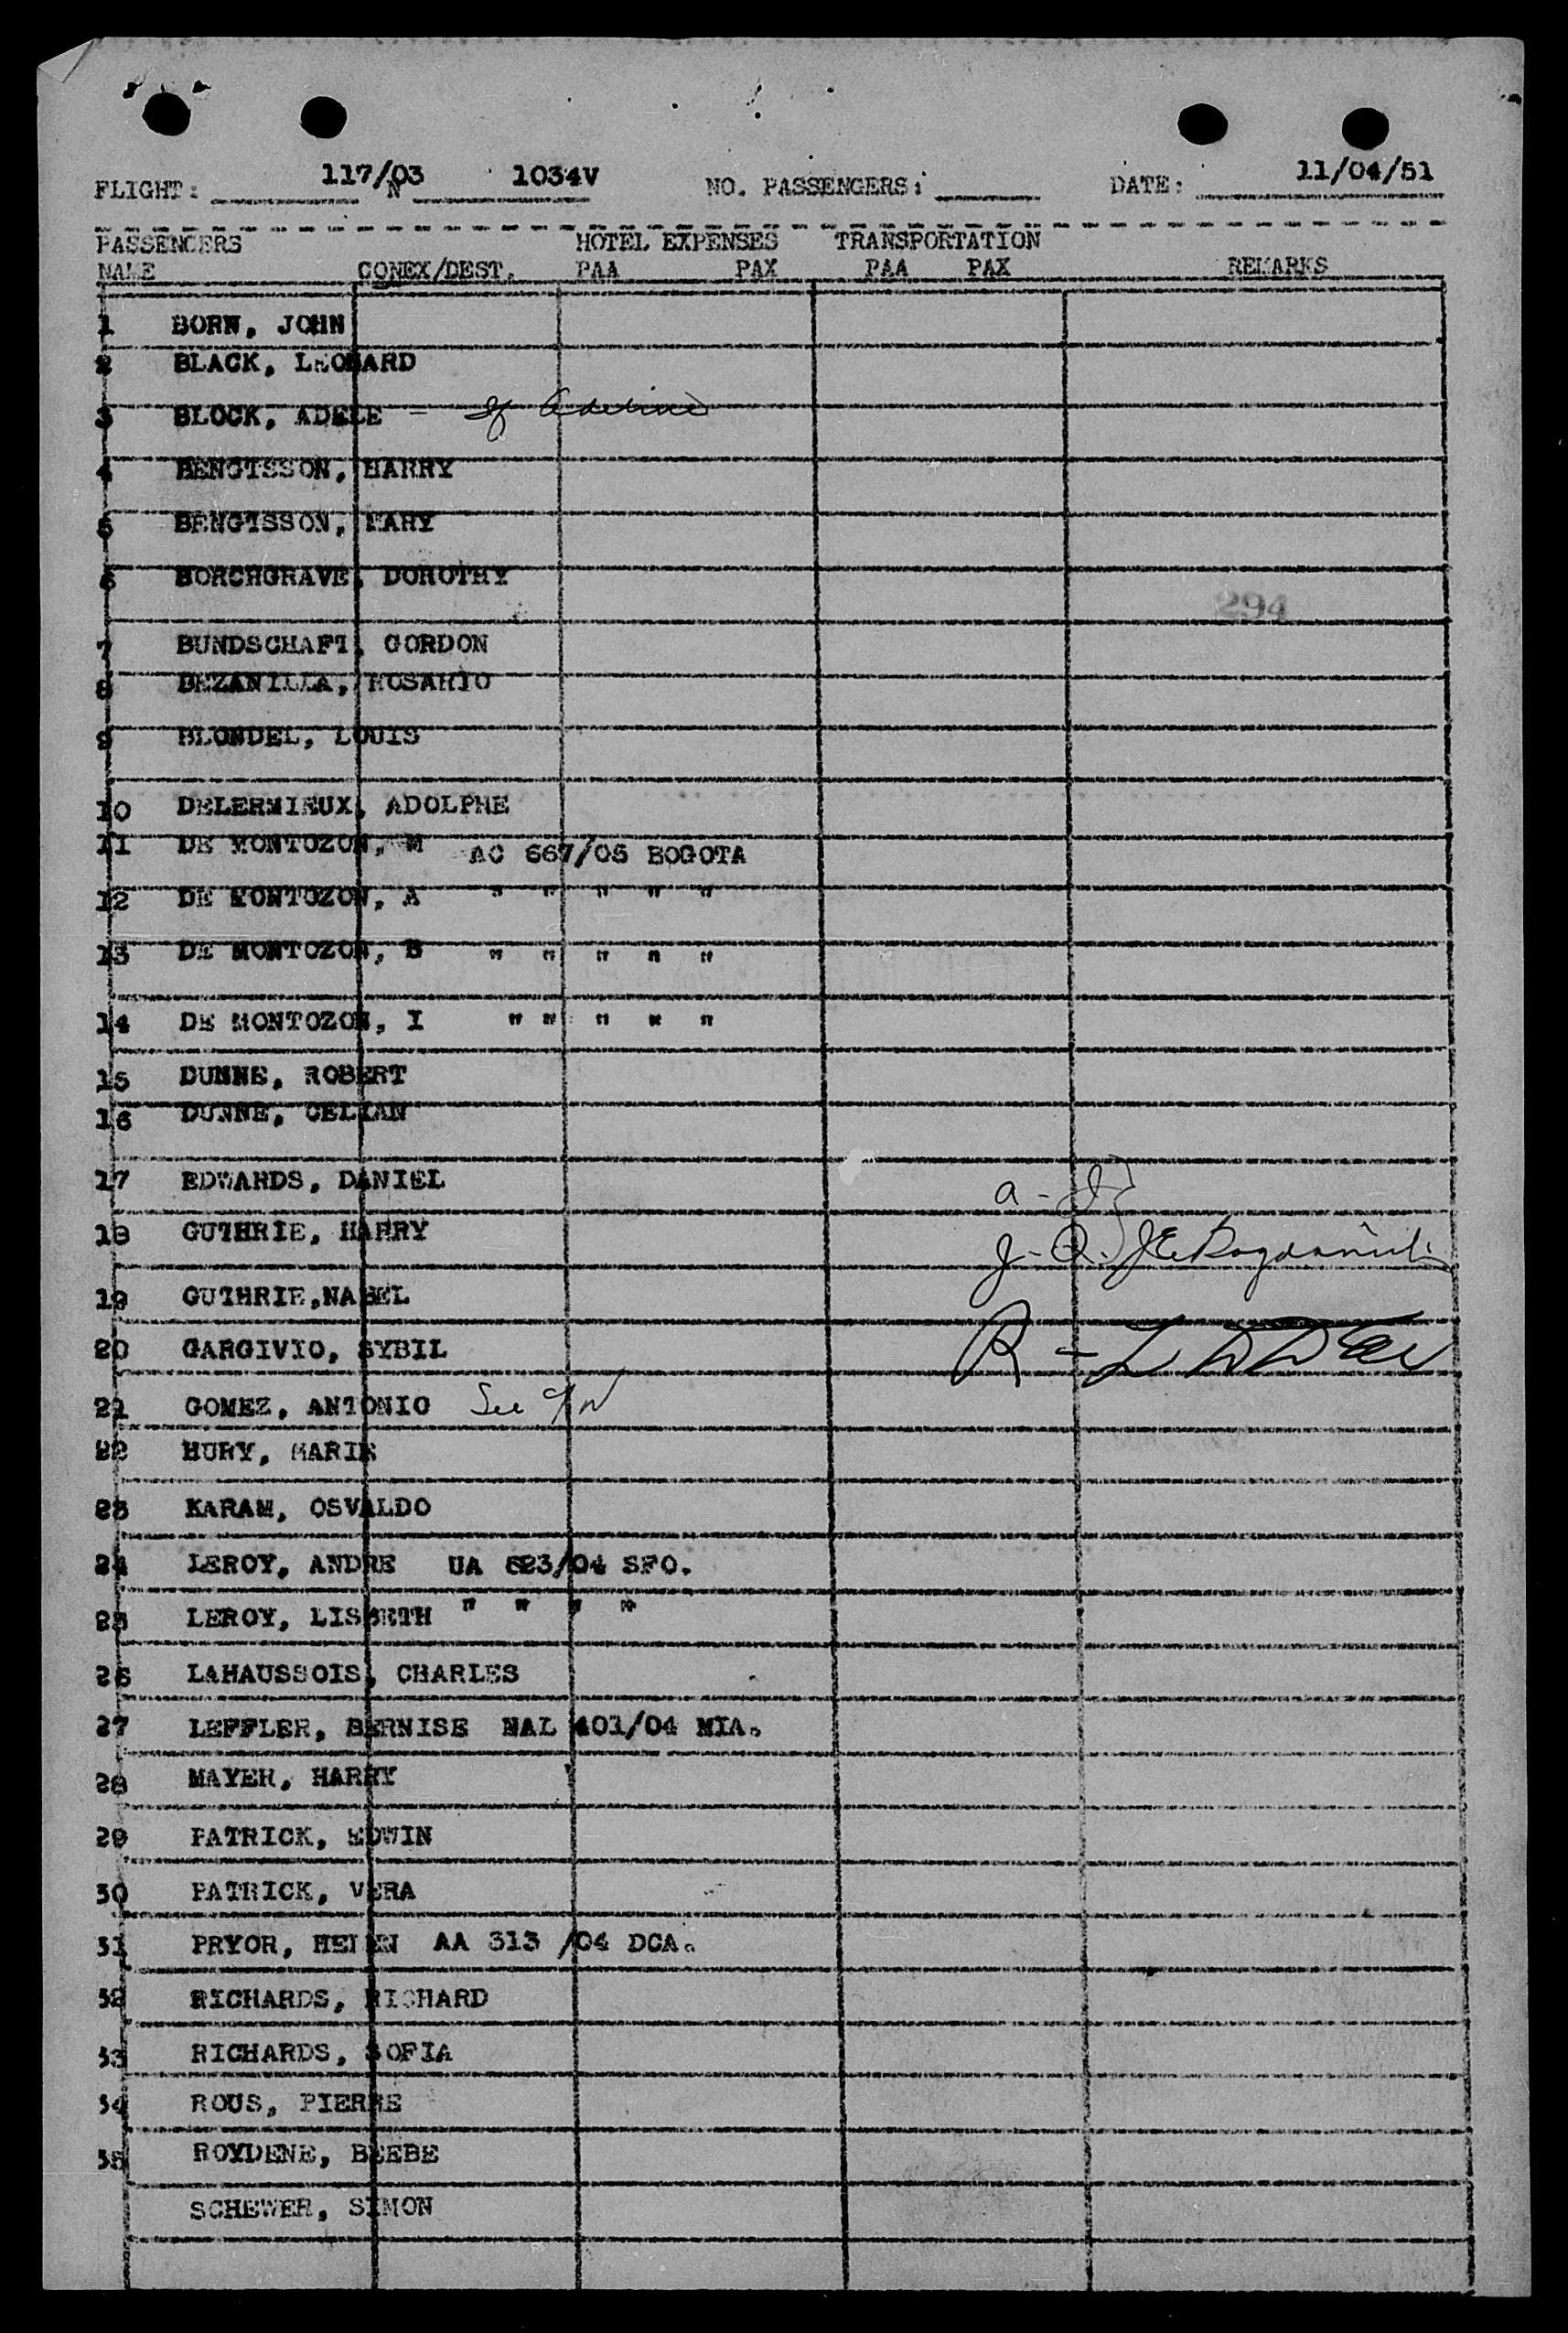 FLIGHT: 117/03 N 1034V NO. PASSENGERS: DATE: 11/04/51
PASSENGERS HOTEL EXPENSES TRANSPORTATION
NAME CONEX/DEST. PAA PAX PAA PAX REMARKS
1 BORN, JOHN
2 BLACK, LEONARD
3 BLOCK, ADELE -
4 BENGTSSON, HARRY
5 BENGTSSON, MARY
6 BORCHGRAVE, DOROTHY
294
7 BUNDSCHAFT, GORDON
8 BEZANILLA, ROSARIO
9 BLONDEL, LOUIS
10 DELERMIEUX, ADOLPHE
11 DE MONTOZON, M AC 667/05 BOGOTA
12 DE MONTOZON, A " " " " "
13 DE MONTOZON, B " " " " "
14 DE MONTOZON, I " " " " "
15 DUNNE, ROBERT
16 DUNNE, CELIAN
17 EDWARDS, DANIEL
18 GUTHRIE, HARRY
19 GUTHRIE,NABEL
20 GARGIVIO, SYBIL
21 GOMEZ, ANTONIO See
22 HURY, MARIE
23 KARAM, OSVALDO
24 LEROY, ANDRE UA 623/04 SFO.
25 LEROY, LISBETH " " " "
26 LAHAUSSOIS, CHARLES
27 LEFFLER, BERNISE NAL 401/04 MIA.
28 MAYER, HARRY
29 PATRICK, EDWIN
30 PATRICK, VERA
31 PRYOR, HELEN AA 313 /04 DCA.
32 RICHARDS, RICHARD
33 RICHARDS, SOFIA
34 ROUS, PIERRE
35 ROYDENE, BEEBE
SCHEWER, SIMON